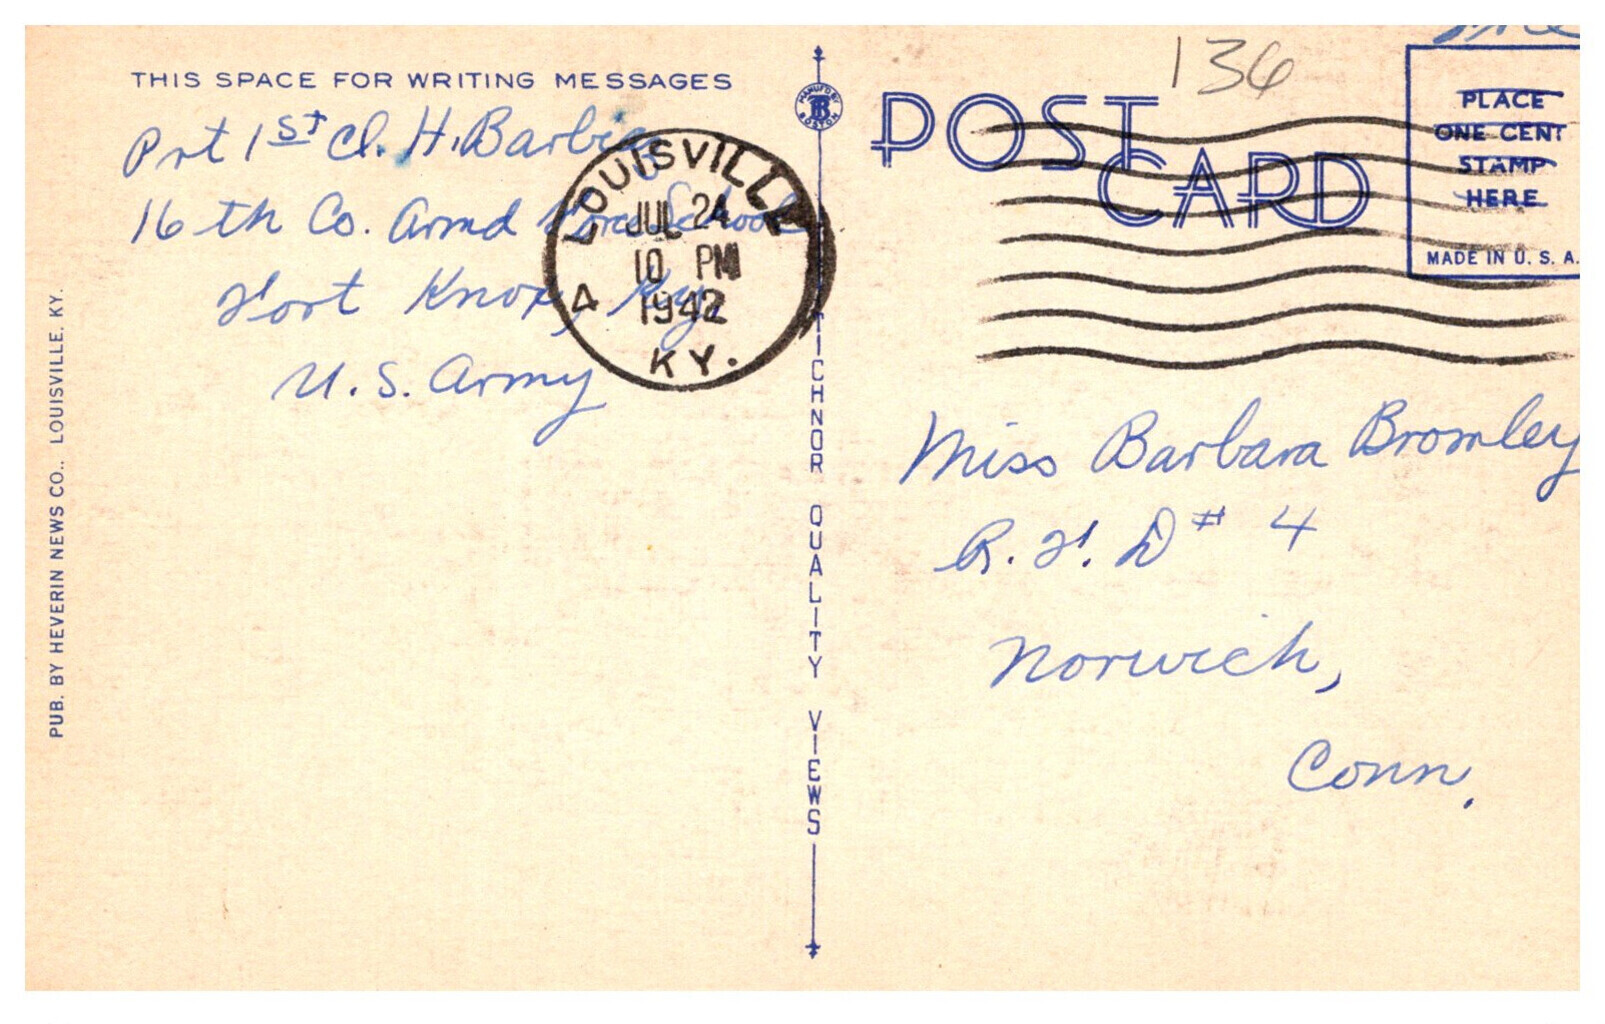 THIS SPACE FOR WRITING MESSAGES
Pvt 1st Cl. H. Barbie
16th Co. Armd Force School
Fort Knox, Ky.
U.S. Army
LOUISVILLE
JUL 24
10 PM
1942
KY.
4
PUB. BY HEVERIN NEWS CO., LOUISVILLE, KY.
MANUF'D BY
TB
BOSTON
TICHNOR QUALITY VIEWS
136
POST
CARD
PLACE
ONE CENT
STAMP
HERE
MADE IN U. S. A.
Miss Barbara Bromley
R. F. D # 4
Norwich,
Conn.